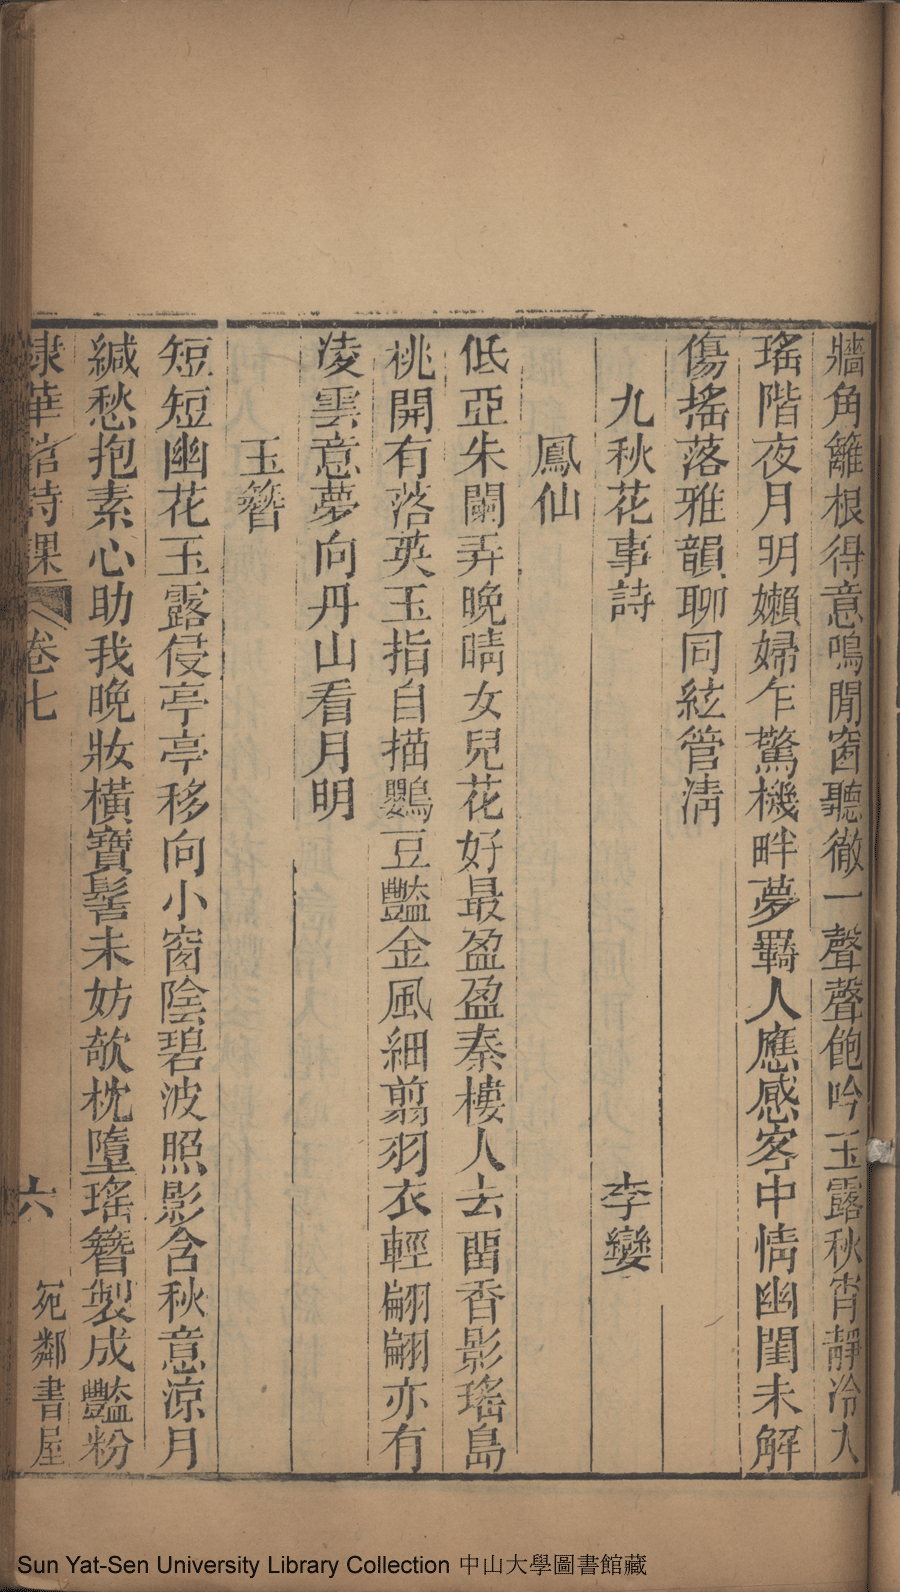 牆角籬根得意鳴閒窗聽徹一聲聲飽吟玉露秋宵靜冷入
瑤階夜月明嬾婦乍驚機畔夢羈人應感客中情幽閨未解
傷搖落雅韻聊同絃管清
九秋花事詩 李孌
鳳仙
低亞朱闌弄晚晴女兒花好最盈盈秦樓人去留香影瑤島
桃開有落英玉指自描鸚豆豔金風細翦羽衣輕翩翩亦有
凌雲意夢向丹山看月明
玉簪
短短幽花玉露侵亭亭移向小窗陰碧波照影含秋意涼月
緘愁抱素心助我晚妝橫寶髻未妨欹枕墮瑤簪製成豔粉
棣華館詩課 卷七 六 宛鄰書屋
Sun Yat-Sen University Library Collection 中山大學圖書館藏